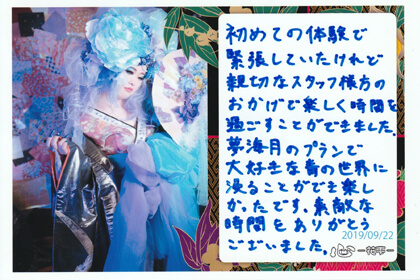 初めての体験で
緊張していたけれど
親切なスタッフ様方の
おかげで楽しく時間を
過ごすことができました。
夢海月のプランで
大好きな青の世界に
浸ることができ楽し
かったです。素敵な
時間をありがとう
ございました。
2019/09/22
心 -花雫-